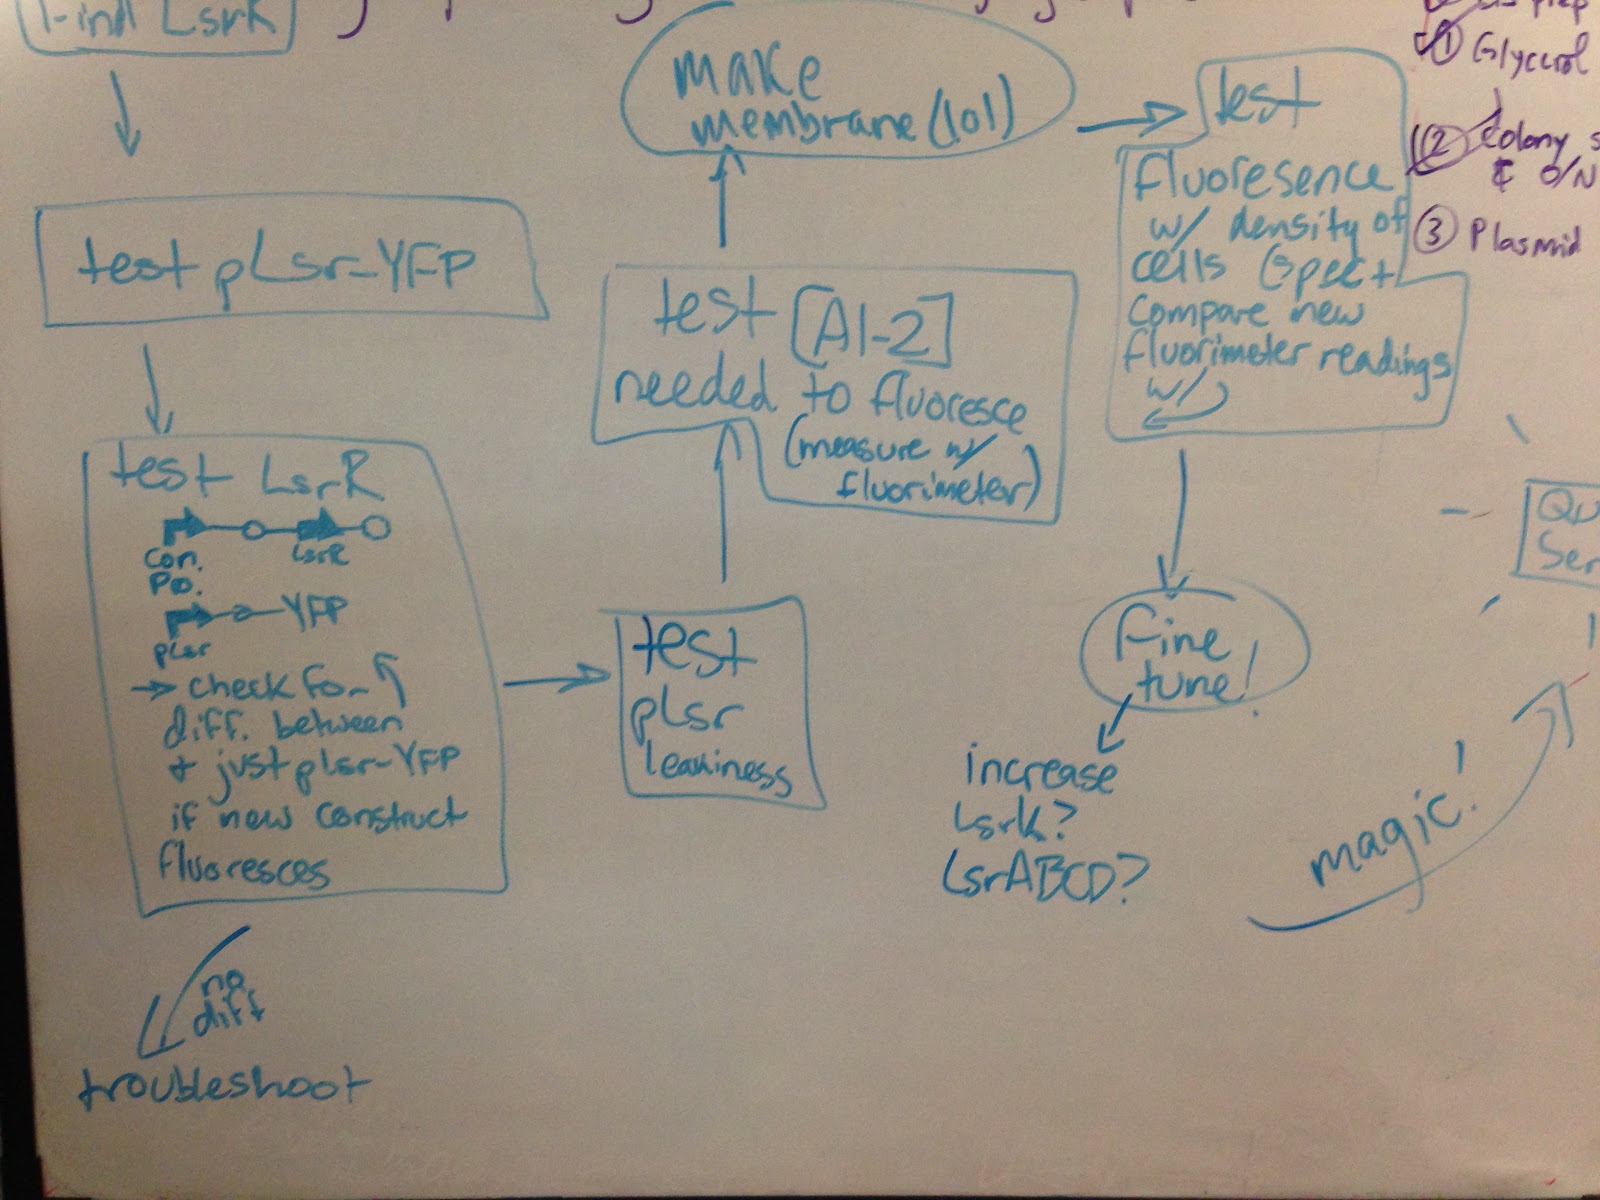 Find LsrK
test pLsr-YFP
test LsrR
Con.
Po.
LsrR
YFP
pLsr
→ check for
diff. between
+ just pLsr-YFP
if new construct
fluoresces
no
diff
troubleshoot
test
pLsr
leakiness
test [AI-2]
needed to fluoresce
(measure w/
fluorimeter)
make
membrane (lol)
test
fluoresence
w/ density of
cells (spec +
compare new
fluorimeter readings
w/
fine
tune!
increase
LsrK?
LsrABCD?
magic!
Qu
Ser
prep
① Glycerol
② Colony s
& O/N
③ Plasmid